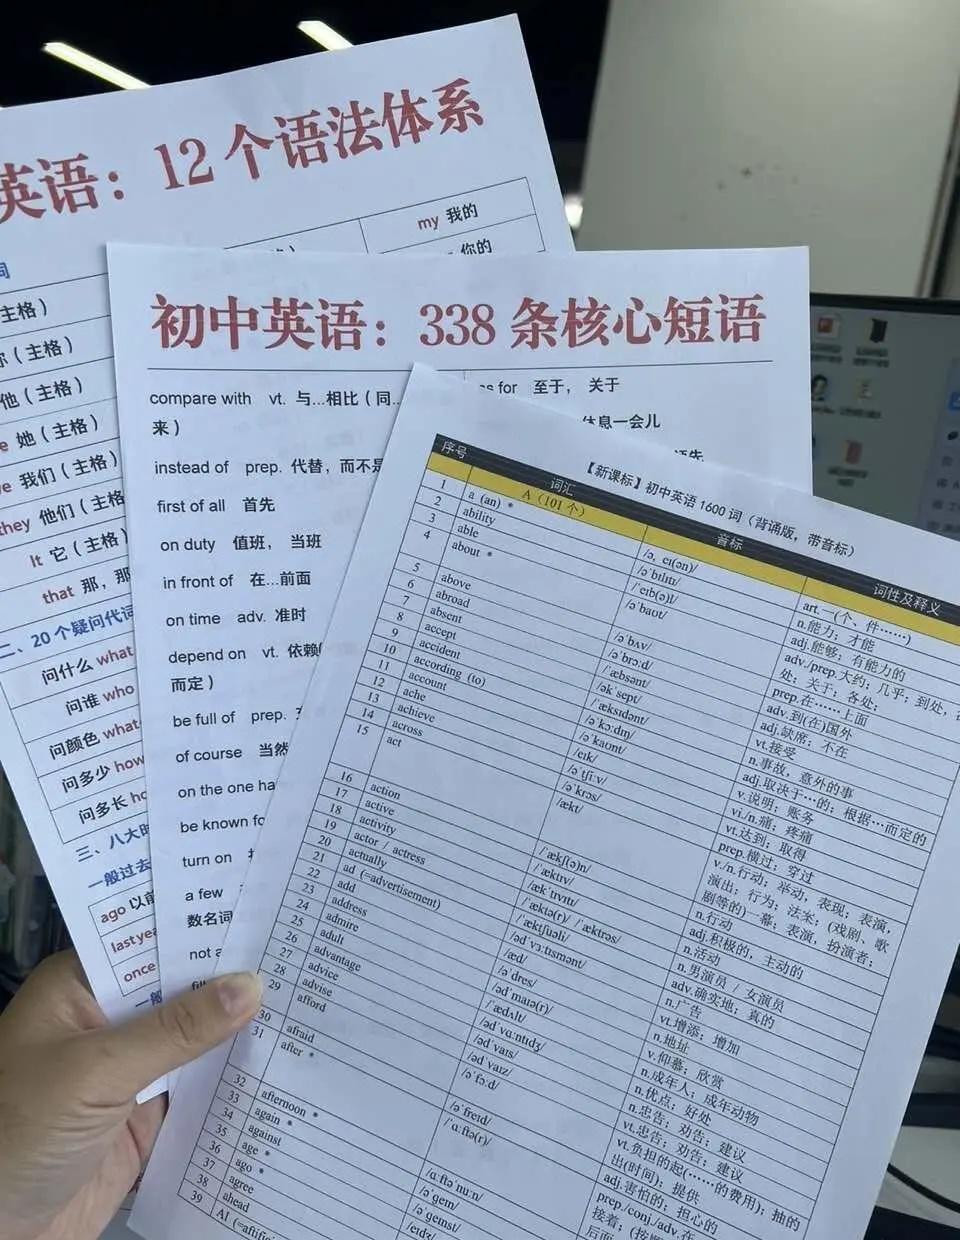 英语：12个语法体系
my 我的
你的
主格）
你（主格）
他（主格）
她（主格）
我们（主格）
they 他们（主格
It 它（主格）
that 那，那
二、20个疑问代词
问什么 what
问谁 who
问颜色 what
问多少 how
问多长
三、八大时
一般过去
ago 以前
last yea
once
一般
初中英语：338条核心短语
compare with vt. 与...相比（同...
来）
instead of prep. 代替，而不是
first of all 首先
on duty 值班，当班
in front of 在...前面
on time adv. 准时
depend on vt. 依赖
而定）
be full of prep.
of course 当然
on the one ha
be known fo
turn on
a few
数名词
not a
as for 至于，关于
休息一会儿
【新课标】初中英语1600词（背诵版，带音标）
序号 词汇 音标 词性及释义
A（101个）
1 a (an) * /ə, eɪ(ən)/ art.一(个、件……)
2 ability /əˈbɪlɪtɪ/ n.能力；才能
3 able /ˈeɪb(ə)l/ adj.能够；有能力的
4 about * /əˈbaʊt/ adv./prep.大约；几乎；到处，在
处；关于；各处；
5 above /əˈbʌv/ prep.在……上面
6 abroad /əˈbrɔ:d/ adv.到(在)国外
7 absent /ˈæbsənt/ adj.缺席；不在
8 accept /əkˈsept/ vt.接受
9 accident /ˈæksɪdənt/ n.事故，意外的事
10 according (to) /əˈkɔ:dɪŋ/ adj.取决于…的；根据…而定的
11 account /əˈkaʊnt/ v.说明；账务
12 ache /eɪk/ vi./n.痛；疼痛
13 achieve /əˈtʃi:v/ vt.达到；取得
14 across /əˈkrɔs/ prep.横过；穿过
15 act /ækt/ v./n.行动；举动，表现；表演，
演出；行为；法案；(戏剧、歌
剧等的)一幕；表演，扮演者；
16 action /ˈækʃ(ə)n/ n.行动
17 active /ˈæktɪv/ adj.积极的，主动的
18 activity /ækˈtɪvɪtɪ/ n.活动
19 actor / actress /ˈæktə(r)/ /ˈæktrəs/ n.男演员 / 女演员
20 actually /ˈæktʃuəli/ adv.确实地；真的
21 ad (=advertisement) /ədˈvɜ:tɪsmənt/ n.广告
22 add /æd/ vt.增添；增加
23 address /əˈdres/ n.地址
24 admire /ədˈmaɪə(r)/ v.仰慕；欣赏
25 adult /ˈædʌlt/ n.成年人；成年动物
26 advantage /ədˈvɑ:ntɪdʒ/ n.优点；好处
27 advice /ədˈvaɪs/ n.忠告；劝告；建议
28 advise /ədˈvaɪz/ vt.忠告；劝告；建议
29 afford /əˈfɔ:d/ vt.负担的起(……的费用)；抽的
出(时间)；提供
30 afraid /əˈfreɪd/ adj.害怕的；担心的
31 after * /ˈɑ:ftə(r)/ prep./conj./adv.在
后面
接着；(按顺
32 afternoon * /ɑ:ftəˈnu:n/
33 again * /əˈgem/
34 against /əˈgemst/
35 age * /eɪdʒ/
36 ago *
37 agree
38 ahead
39 AI (=aftifi